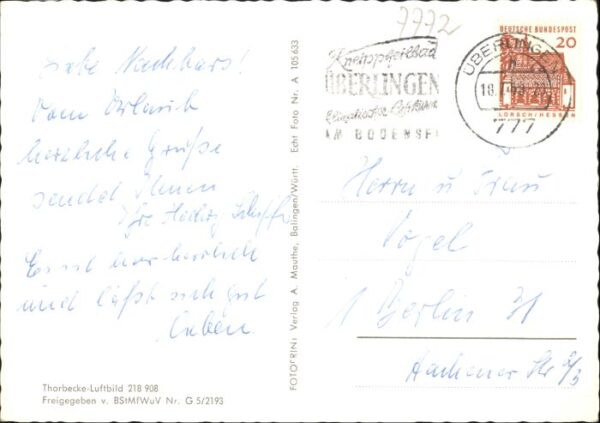 Liebe Nachbars!
Vom Urlaub
herzliche Grüße
sendet Ihnen
Ihre Hedwig
Es ist hier herrlich
und läßt sich gut
leben.
Thorbecke-Luftbild 218 908
Freigegeben v. BStMfWuV Nr. G 5/2193
FOTOPRINT Verlag A. Mauthe, Balingen/Württ. Echt Foto Nr. A 105 633
7772
Kneippheilbad
ÜBERLINGEN
AM BODENSEE
ÜBERLINGEN
777
DEUTSCHE BUNDESPOST
20
LORSCH/HESSEN
Herrn u Frau
Vogel
1 Berlin 31
Aachener Str 2/3